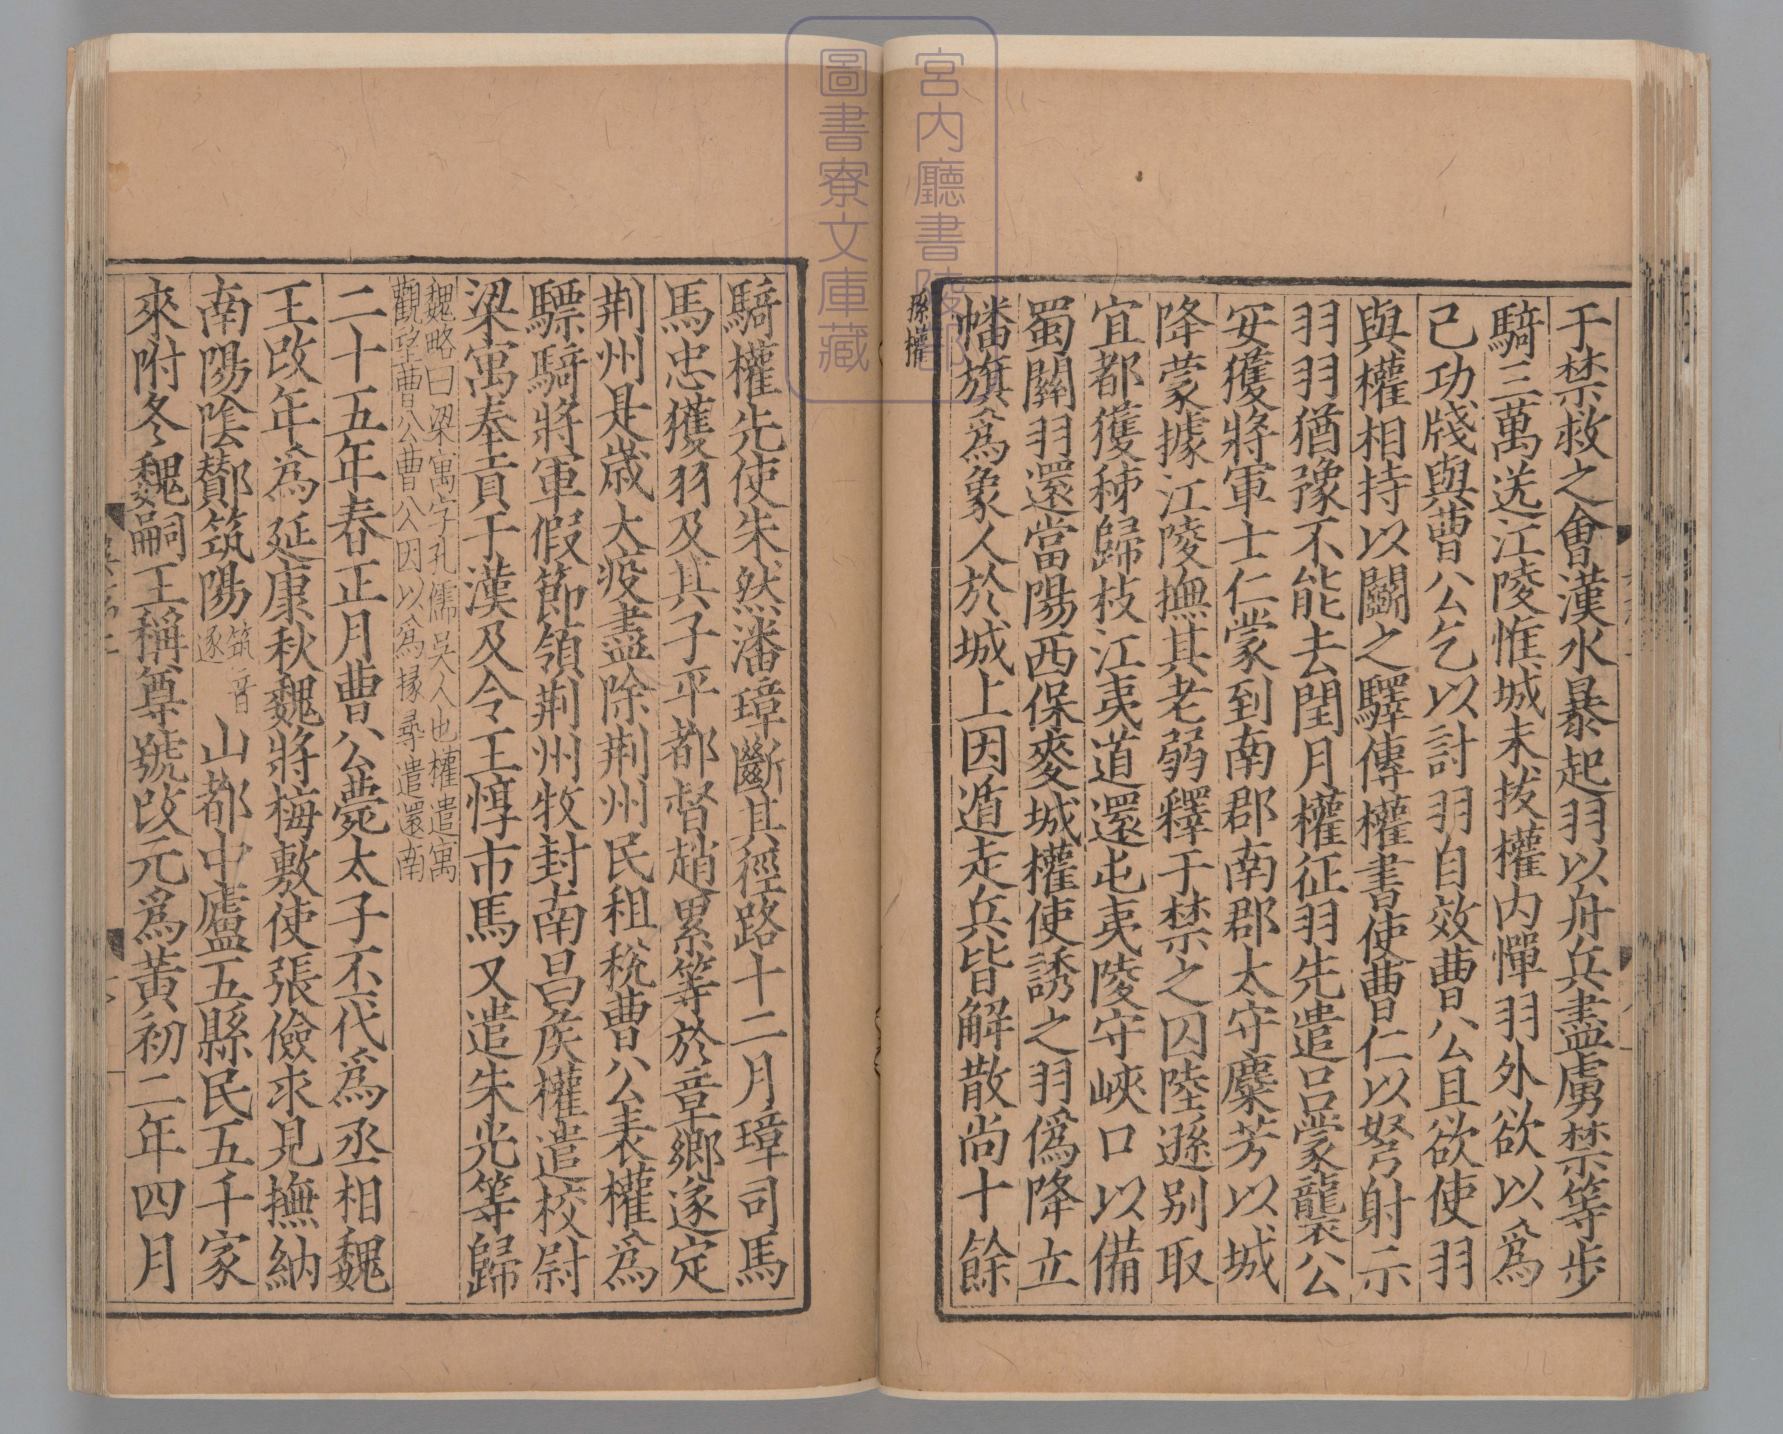 于禁救之會漢水暴起羽以舟兵盡虜禁等步
騎三萬送江陵惟城未拔權內憚羽外欲以為
己功牋與曹公乞以討羽自效曹公且欲使羽
與權相持以鬭之驛傳權書使曹仁以弩射示
羽羽猶豫不能去閏月權征羽先遣呂蒙襲公
安獲將軍士仁蒙到南郡南郡太守麋芳以城
降蒙據江陵撫其老弱釋于禁之囚陸遜别取
宜都獲秭歸枝江夷道還屯夷陵守峽口以備
蜀關羽還當陽西保麥城權使誘之羽僞降立
幡旗為象人於城上因遁走兵皆解散尚十餘
孫權
騎權先使朱然潘璋斷其徑路十二月璋司馬
馬忠獲羽及其子平都督趙累等於章鄉遂定
荆州是歲大疫盡除荆州民租稅曹公表權為
驃騎將軍假節領荆州牧封南昌侯權遣校尉
梁寓奉貢于漢及令王惇市馬又遣朱光等歸
魏略曰梁寓字孔儒吳人也權遣寓
觀望曹公曹公因以為掾尋遣還南
二十五年春正月曹公薨太子丕代為丞相魏
王改年為延康秋魏將梅敷使張儉求見撫納
南陽陰酇筑陽筑音逐山都中廬五縣民五千家
來附冬魏嗣王稱尊號改元為黃初二年四月
宮內廳書陵部
圖書寮文庫藏